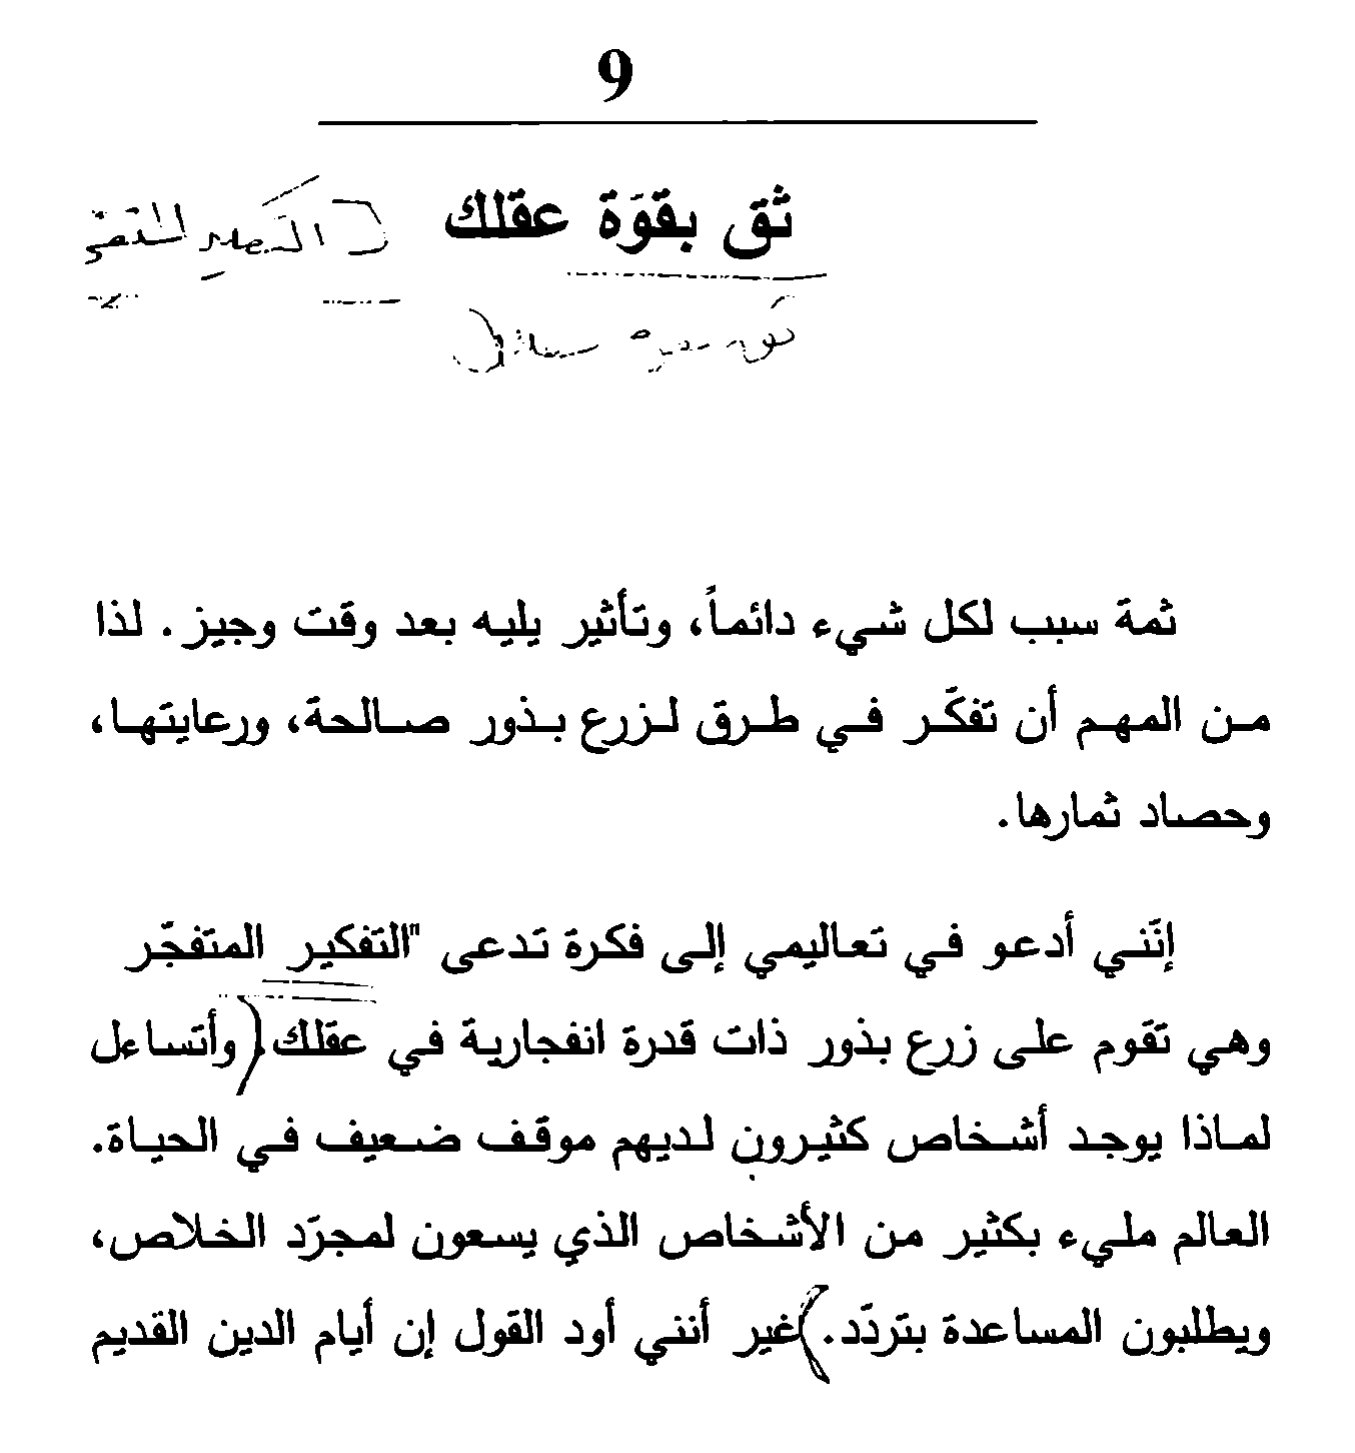 9
ثق بقوَة عقلك
ثمة سبب لكل شيء دائماً، وتأثير يليه بعد وقت وجيز. لذا
من المهم أن تفكّر في طرق لزرع بذور صالحة، ورعايتها،
وحصاد ثمارها.
إنّني أدعو في تعاليمي إلى فكرة تدعى "التفكير المتفجّر
وهي تقوم على زرع بذور ذات قدرة انفجارية في عقلك. وأتساءل
لماذا يوجد أشخاص كثيرون لديهم موقف ضعيف في الحياة.
العالم مليء بكثير من الأشخاص الذي يسعون لمجرّد الخلاص،
ويطلبون المساعدة بتردّد. غير أنني أود القول إن أيام الدين القديم